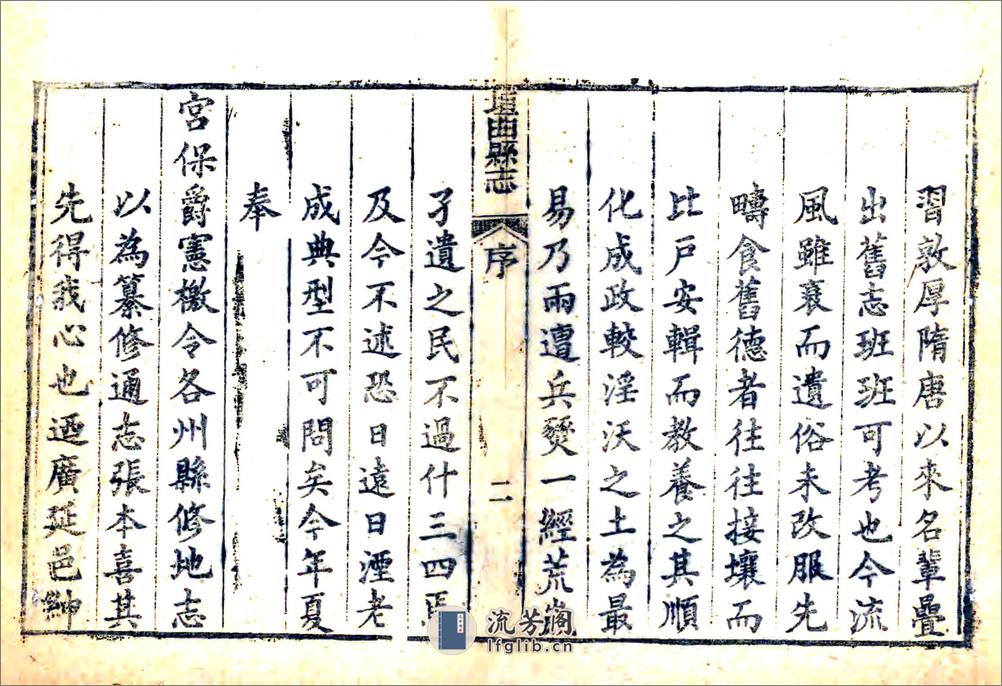 習敦厚隋唐以來名輩疊
出舊志班班可考也今流
風雖衰而遺俗未改服先
疇食舊德者往往接壤而
比戶安輯而教養之其順
化成政較淫沃之土為最
易乃兩遭兵燹一經荒
垣曲縣志
序
二
孑遺之民不過什三四
及今不述恐日遠日湮老
成典型不可問矣今年夏
奉
宮保爵憲檄令各州縣修地志
以為纂修通志張本喜其
先得我心也迺廣延邑紳
流芳閣
lfglib.cn